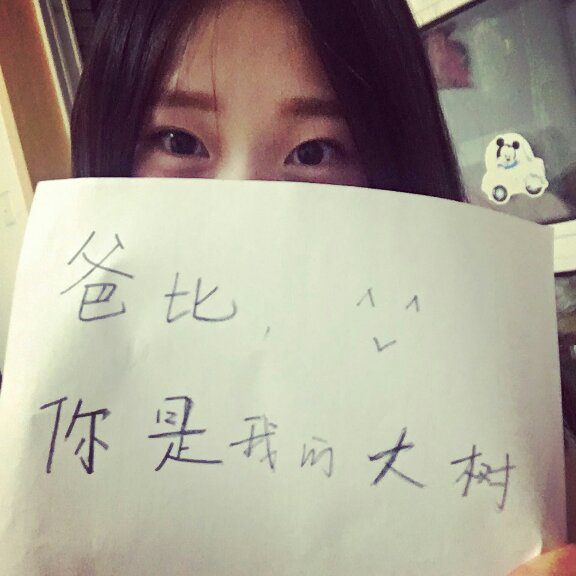 爸比，
你是我的大树